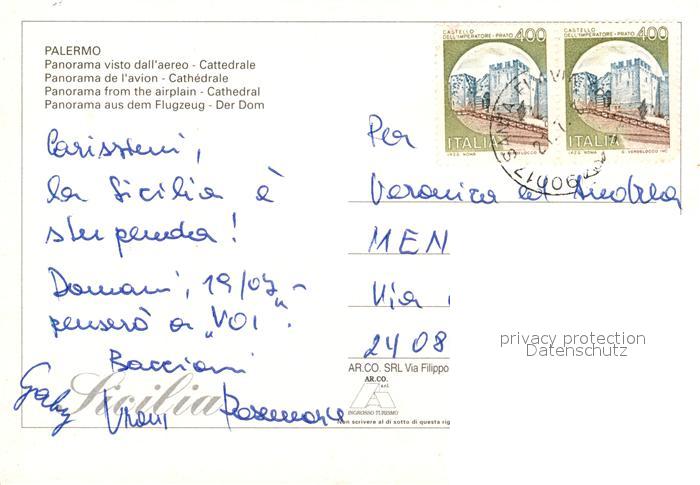 PALERMO
Panorama visto dall'aereo - Cattedrale
Panorama de l'avion - Cathédrale
Panorama from the airplain - Cathedral
Panorama aus dem Flugzeug - Der Dom
Carissimi,
la Sicilia è
stupenda!
Domani, 19/07 -
penserò a "VOI".
Baccioni
Gaby
Rosemarie
Sicilia
CASTELLO
DELL'IMPERATORE - PRATO 400
ITALIA
I.P.Z.S. ROMA
CASTELLO
DELL'IMPERATORE - PRATO 400
ITALIA
I.P.Z.S. ROMA
90017
Per
Veronica ed Andrea
MEN
Via
2408
privacy protection
Datenschutz
AR.CO. SRL Via Filippo
AR.CO.
s.r.l.
INGROSSO TURISMO
Non scrivere al di sotto di questa rig